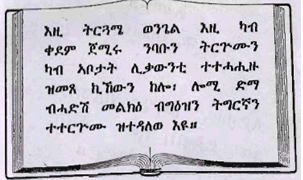 እዚ ትርጓሜ ወንጌል እዚ ካብ
ቀደም ጀሚሩ ንባቡን ትርጕሙን
ካብ ኣቦታት ሊቃውንቲ ተተሓሒዙ
ዝመጸ ኪኸውን ከሎ፣ ሎሚ ድማ
ብሓድሽ መልክዕ ብግዕዝን ትግርኛን
ተተርጕሙ ዝተዳለወ እዩ።